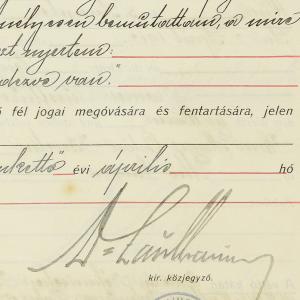 mélyesen bemutattam, a mire
zet nyertem:
ndezve van."
ó fél jogai megóvására és fentartására, jelen
nkettő" évi április hó
kir. közjegyző.